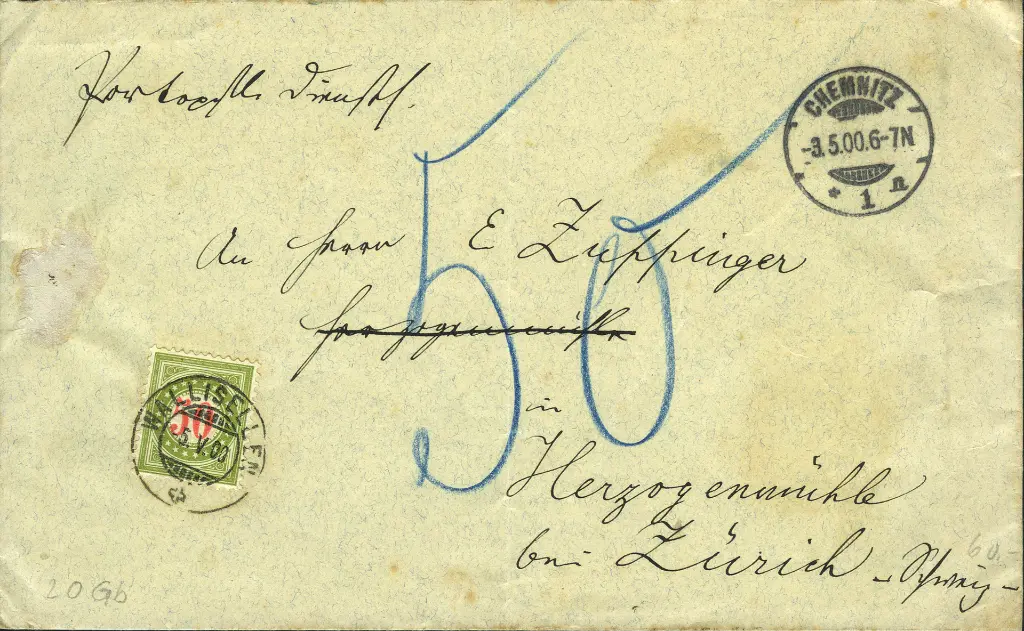 Portopfl. Diensts.
CHEMNITZ
-3.5.00.6-7N
* 1 n
50
An Herrn E Zuppinger
Herzogenmühle
in
Herzogenmühle
bei Zürich – Schweiz –
WALLISELLEN
50
-5.V.00
60.-
20 Gb